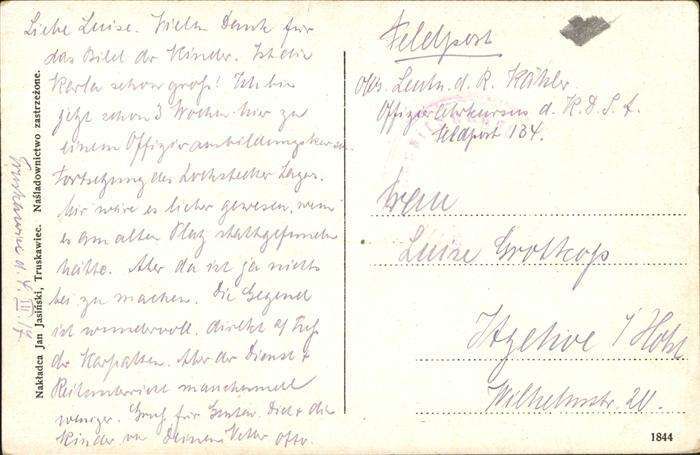 Liebe Luise. Vielen Dank für
das Bild der Kinder. Ist die
Karla schon groß! Ich bin
jetzt schon 3 Wochen hier zu
einem Offizierausbildungskursus
Fortsetzung des Lockstedter Lagers.
Mir wäre es lieber gewesen, wenn
es am alten Platz stattgefunden
hätte. Aber da ist ja nichts
bei zu machen. Die Gegend
ist wundervoll, direkt a/ Fuß
der Karpathen. Aber der Dienst &
Reitunterricht manchmal
weniger. Gruß für Gustav. Dich & die
Kinder von Deinem Vetter Otto.
Truskawiec
Nakładca Jan Jasiński, Truskawiec. Naśladownictwo zastrzeżone.
Feldpost
Abs. Leutn. d. R. Köhler
Offizier d. K. D. S. A.
Feldpost 134.
Frau
Luise Grotkop
Itzehoe i/ Holst
Wilhelmstr. 20.
1844